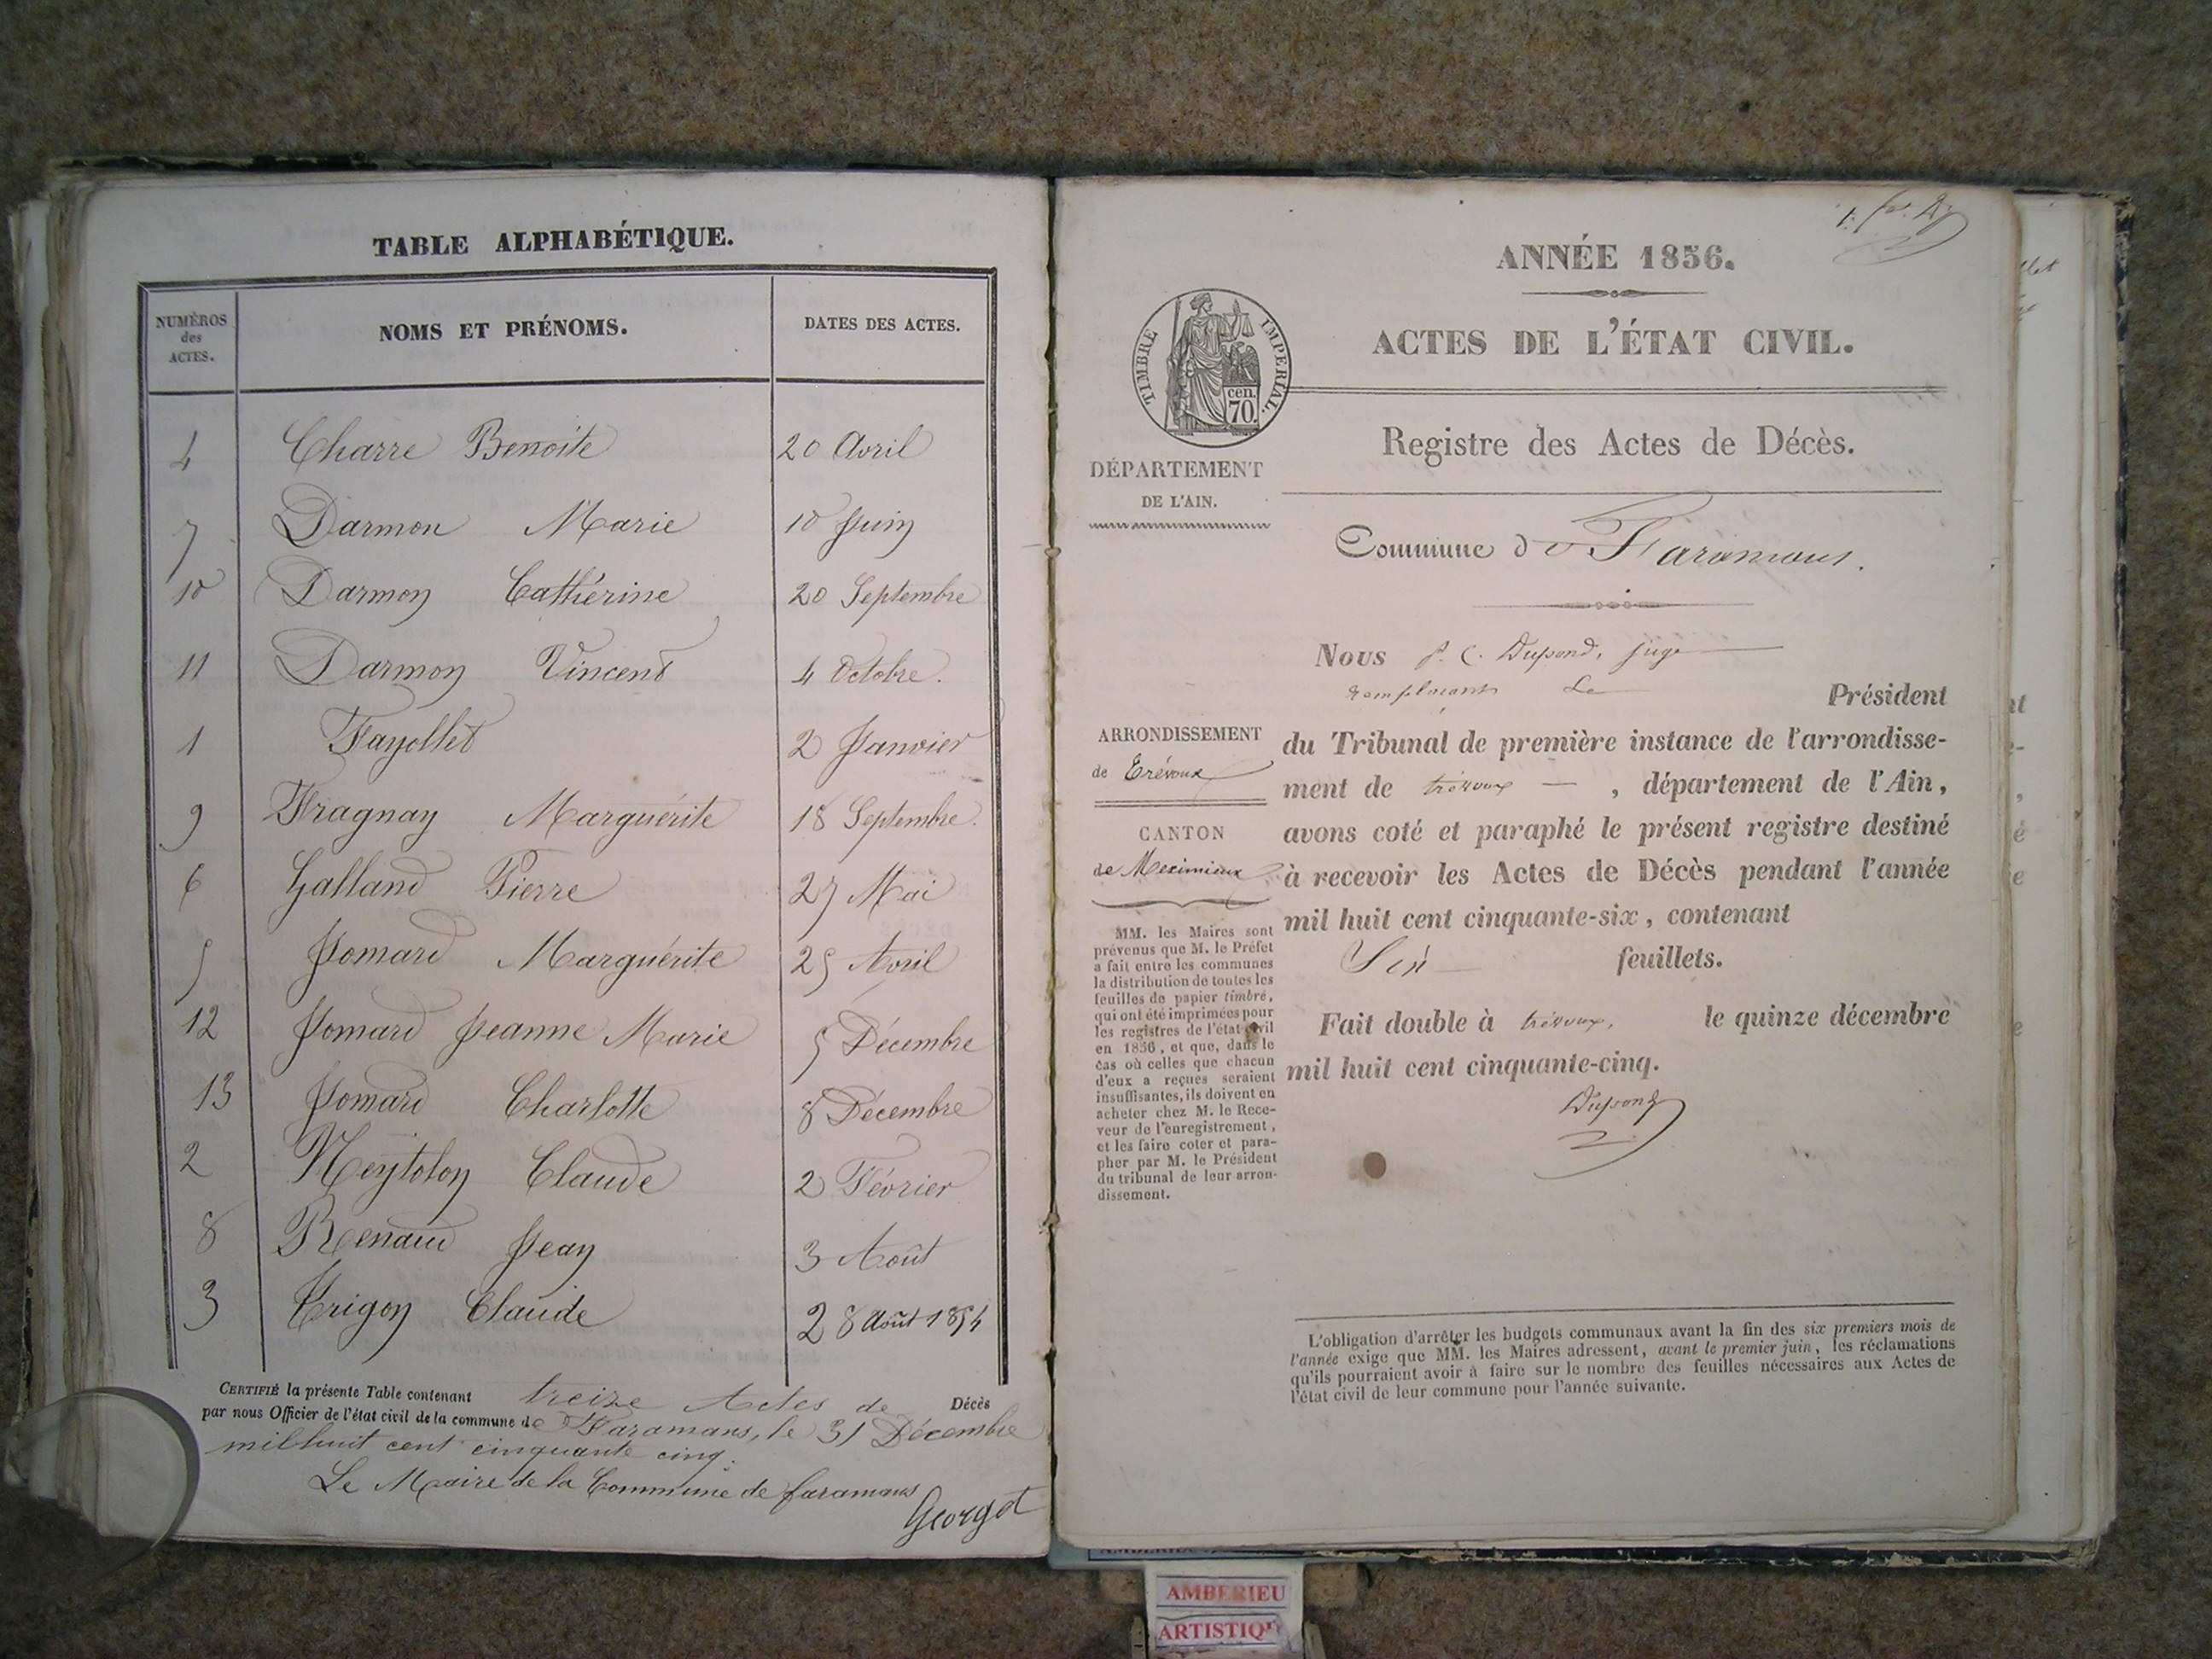 TABLE ALPHABÉTIQUE.
NUMÉROS des ACTES. NOMS ET PRÉNOMS. DATES DES ACTES.
4 Charre Benoite 20 Avril
7 Darmon Marie 10 Juin
10 Darmon Cathérine 20 Septembre
11 Darmon Vincent 4 Octobre.
1 Fayollet 2 Janvier
9 Fragnay Marguérite 18 Septembre.
6 Galland Pierre 27 Mai
5 Jomard Marguérite 25 Avril
12 Jomard Jeanne Marie 5 Décembre
13 Jomard Charlotte 8 Décembre
2 Neytolon Claude 2 Février
8 Renaud Jean 3 Août
3 Trigon Claude 28 Août 1854
CERTIFIÉ la présente Table contenant treize Actes de Décès
par nous Officier de l'état civil de la commune de Faramans, le 31 Décembre
mil huit cent cinquante cinq.
Le Maire de la Commune de faramans
Georgot
ANNÉE 1856.
ACTES DE L'ÉTAT CIVIL.
TIMBRE IMPERIAL.
cen.
70.
Registre des Actes de Décès.
DÉPARTEMENT
DE L'AIN.
Commune de Faramans.
Nous P. C. Dupond, juge
remplaçant Le Président
du Tribunal de première instance de l'arrondisse-
ment de trévoux , département de l'Ain,
avons coté et paraphé le présent registre destiné
à recevoir les Actes de Décès pendant l'année
mil huit cent cinquante-six, contenant
Six feuillets.
Fait double à trévoux, le quinze décembre
mil huit cent cinquante-cinq.
Dupond
ARRONDISSEMENT
de Trévoux
CANTON
de Meximieux
MM. les Maires sont
prévenus que M. le Préfet
a fait entre les communes
la distribution de toutes les
feuilles de papier timbré,
qui ont été imprimées pour
les registres de l'état civil
en 1856, et que, dans le
cas où celles que chacun
d'eux a reçues seraient
insuffisantes, ils doivent en
acheter chez M. le Rece-
veur de l'enregistrement,
et les faire coter et para-
pher par M. le Président
du tribunal de leur arron-
dissement.
L'obligation d'arrêter les budgets communaux avant la fin des six premiers mois de
l'année exige que MM. les Maires adressent, avant le premier juin, les réclamations
qu'ils pourraient avoir à faire sur le nombre des feuilles nécessaires aux Actes de
l'état civil de leur commune pour l'année suivante.
AMBERIEU
ARTISTIQUE